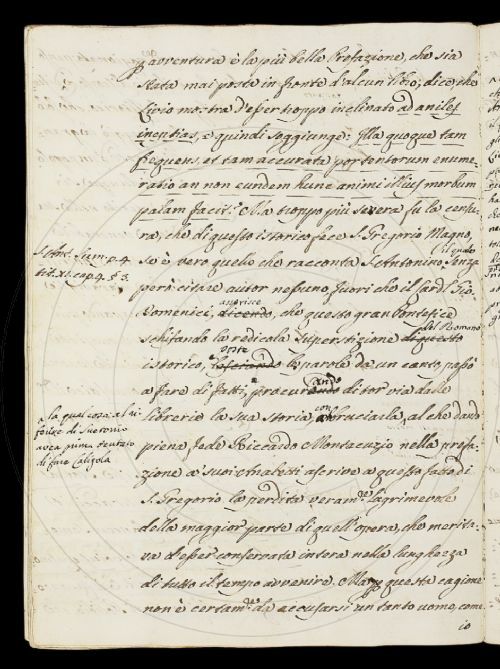 avventura è la più bella Prefazione, che sia
stata mai posta in fronte d'alcun libro; dice, che
Livio mostra d'esser troppo inclinato ad aniles
ineptias, e quindi soggiunge: Illa quoque tam
frequens, et tam accurata portentorum enume-
ratio an non eundem hunc animi illius morbum
palam facit? Ma troppo più severa fu la censu-
ra, che di questo istorico fece S. Gregorio Magno,
S. Ant. Sum. p. 4
tit. XI. cap. 4. § 3.
se è vero quello che racconta S. Antonino, senza
però citare autor nessuno, fuori che il Card. Gio.
Domenici, asserisce dicendo, che questo gran Pontefice
schifando la redicola superstizione del Romano di questo
istorico, poste lasciando le parole da un canto, passò
a fare di fatti, procurando di tor via dalle
la qual cosa al ri
ferire di Suetonio
avea prima tentato
di fare Caligola
librerie la sua storia, con abbruciarla, al che dando
piena fede Riccardo Montacuzio nella prefa-
zione a' suoi Analetti ascrive a questo fatto di
S. Gregorio la perdita veram.te lagrimevole
della maggior parte di quell'opera, che merita-
va d'esser conservata intera nella lunghezza
di tutto il tempo avvenire. Ma per questa cagione
non è certam.te da accusarsi un tanto uomo, come
io